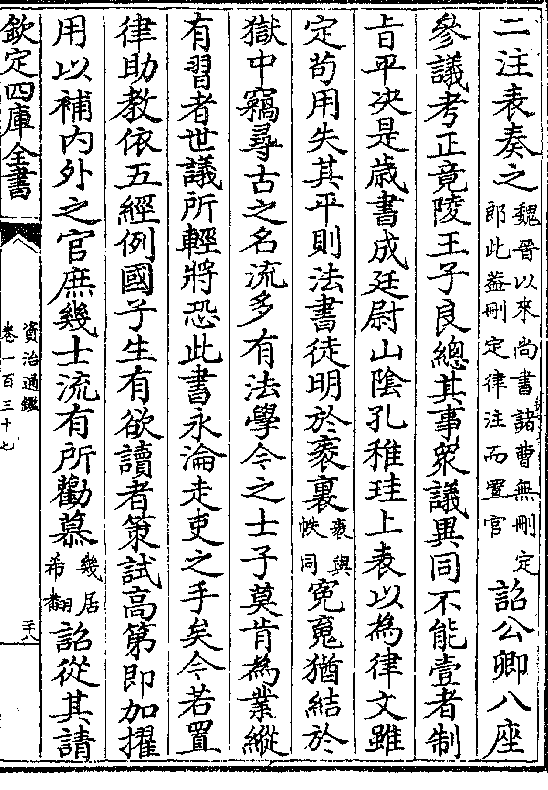 二注表奏之魏晉以來尚書諸曹無刪定郎此葢刪定律注而置官詔公卿八座
參議考正竟陵王子良總其事衆議異同不能壹者制
旨平決是歲書成廷尉山陰孔稚珪上表以為律文雖
定苟用失其平則法書徒明於袠裏袠與帙同寃魂猶結於
獄中竊尋古之名流多有法學今之士子莫肯為業縱
有習者世議所輕將恐此書永淪走吏之手矣今若置
律助教依五經例國子生有欲讀者策試高第即加擢
用以補内外之官庶幾士流有所勸慕幾居希翻詔從其請
欽定四庫全書
資治通鑑
卷一百三十七